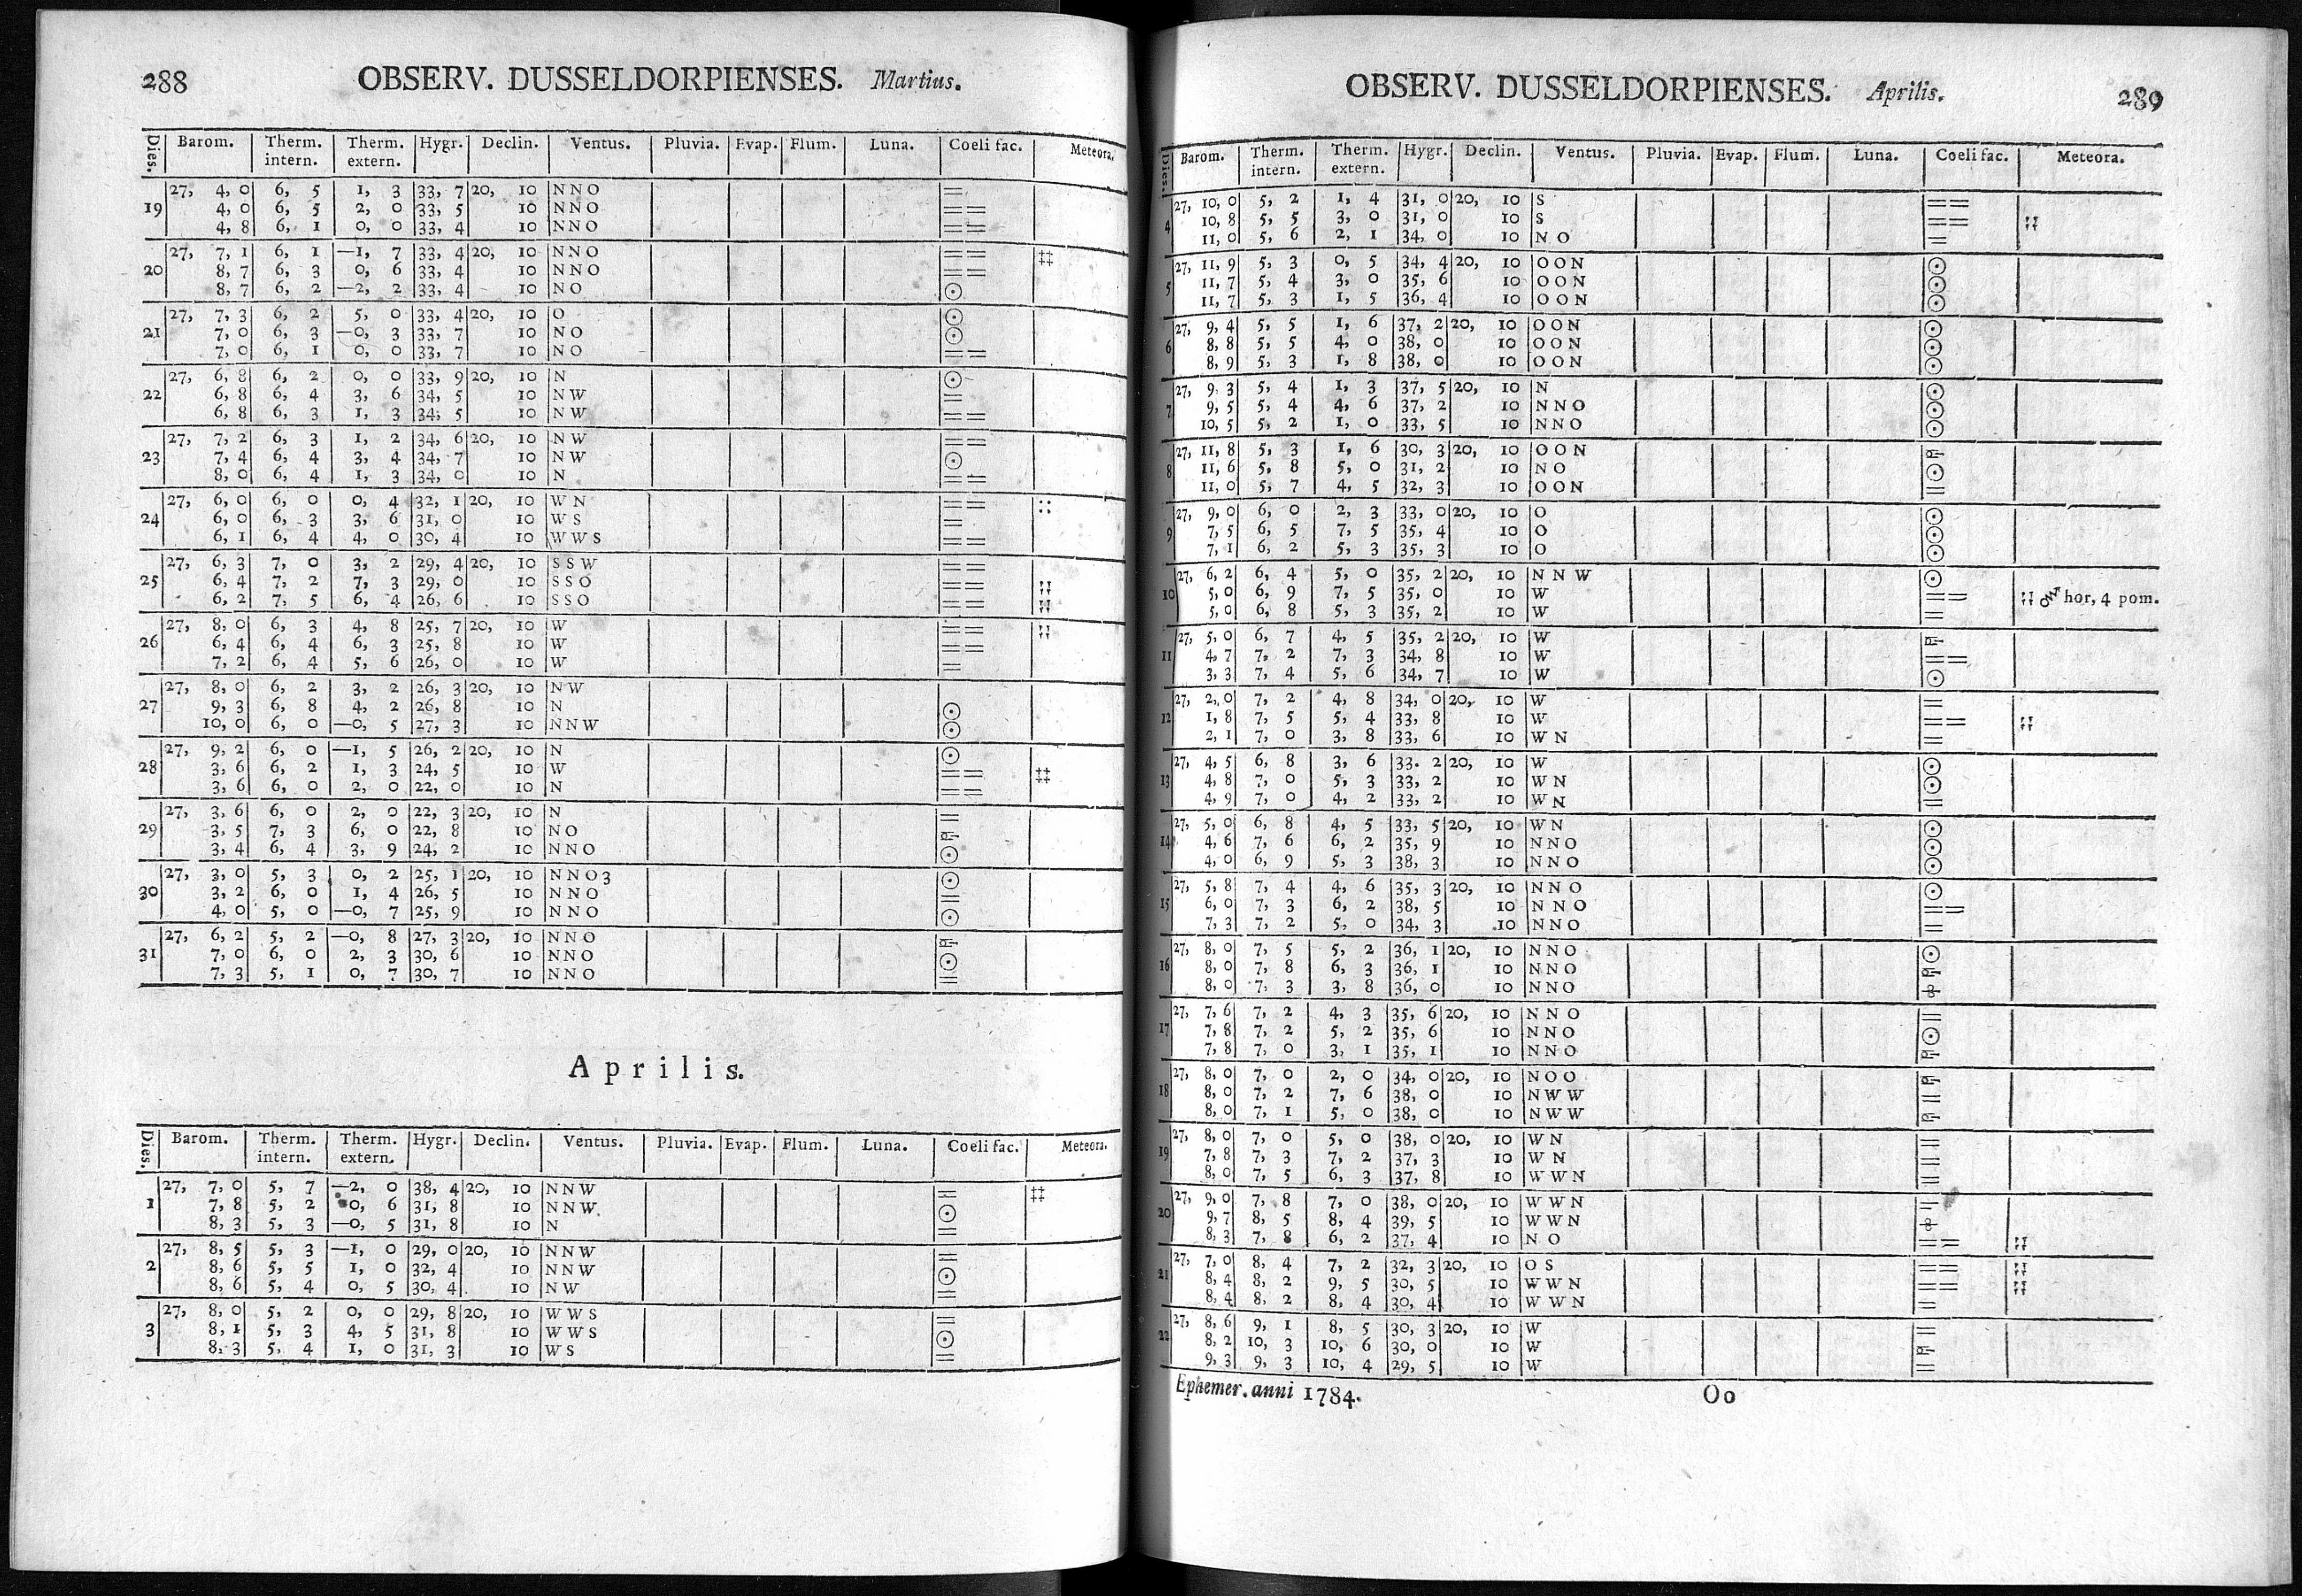 288 OBSERV. DUSSELDORPIENSES. Martius.
Dies. Barom. Therm. intern. Therm. extern. Hygr. Declin. Ventus. Pluvia. Evap. Flum. Luna. Coeli fac. Meteora.
27, 4, 0 6, 5 1, 3 33, 7 20, 10 NNO =
19 4, 0 6, 5 2, 0 33, 5 10 NNO ==
4, 8 6, 1 0, 0 33, 4 10 NNO ==
27, 7, 1 6, 1 —1, 7 33, 4 20, 10 NNO == ‡‡
20 8, 7 6, 3 0, 6 33, 4 10 NNO ==
8, 7 6, 2 —2, 2 33, 4 10 NO ☉
27, 7, 3 6, 2 5, 0 33, 4 20, 10 O ☉
21 7, 0 6, 3 —0, 3 33, 7 10 NO ☉
7, 0 6, 1 0, 0 33, 7 10 NO ==
27, 6, 8 6, 2 0, 0 33, 9 20, 10 N ☉
22 6, 8 6, 4 3, 6 34, 5 10 NW =
6, 8 6, 3 1, 3 34, 5 10 NW ==
27, 7, 2 6, 3 1, 2 34, 6 20, 10 NW ==
23 7, 4 6, 4 3, 4 34, 7 10 NW ☉
8, 0 6, 4 1, 3 34, 0 10 N ==
27, 6, 0 6, 0 0, 4 32, 1 20, 10 WN == ::
24 6, 0 6, 3 3, 6 31, 0 10 WS =
6, 1 6, 4 4, 0 30, 4 10 WWS ==
27, 6, 3 7, 0 3, 2 29, 4 20, 10 SSW ==
25 6, 4 7, 2 7, 3 29, 0 10 SSO ==
6, 2 7, 5 6, 4 26, 6 10 SSO ==
27, 8, 0 6, 3 4, 8 25, 7 20, 10 W ==
26 6, 4 6, 4 6, 3 25, 8 10 W ==
7, 2 6, 4 5, 6 26, 0 10 W =
27, 8, 0 6, 2 3, 2 26, 3 20, 10 NW
27 9, 3 6, 8 4, 2 26, 8 10 N ☉
10, 0 6, 0 —0, 5 27, 3 10 NNW ☉
27, 9, 2 6, 0 —1, 5 26, 2 20, 10 N ☉
28 3, 6 6, 2 1, 3 24, 5 10 W == ‡‡
3, 6 6, 0 2, 0 22, 0 10 N ==
27, 3, 6 6, 0 2, 0 22, 3 20, 10 N =
29 3, 5 7, 3 6, 0 22, 8 10 NO
3, 4 6, 4 3, 9 24, 2 10 NNO ☉
27, 3, 0 5, 3 0, 2 25, 1 20, 10 NNO3 ☉
30 3, 2 6, 0 1, 4 26, 5 10 NNO =
4, 0 5, 0 —0, 7 25, 9 10 NNO ☉
27, 6, 2 5, 2 —0, 8 27, 3 20, 10 NNO
31 7, 0 6, 0 2, 3 30, 6 10 NNO ☉
7, 3 5, 1 0, 7 30, 7 10 NNO =
Aprilis.
Dies. Barom. Therm. intern. Therm. extern. Hygr. Declin. Ventus. Pluvia. Evap. Flum. Luna. Coeli fac. Meteora.
27, 7, 0 5, 7 —2, 0 38, 4 20, 10 NNW = ‡‡
1 7, 8 5, 2 0, 6 31, 8 10 NNW. ☉
8, 3 5, 3 —0, 5 31, 8 10 N =
27, 8, 5 5, 3 —1, 0 29, 0 20, 10 NNW =
2 8, 6 5, 5 1, 0 32, 4 10 NNW ☉
8, 6 5, 4 0, 5 30, 4 10 NW =
27, 8, 0 5, 2 0, 0 29, 8 20, 10 WWS =
3 8, 1 5, 3 4, 5 31, 8 10 WWS ☉
8, 3 5, 4 1, 0 31, 3 10 WS =
OBSERV. DUSSELDORPIENSES. Aprilis. 289
Dies. Barom. Therm. intern. Therm. extern. Hygr. Declin. Ventus. Pluvia. Evap. Flum. Luna. Coeli fac. Meteora.
27, 10, 0 5, 2 1, 4 31, 0 20, 10 S ==
4 10, 8 5, 5 3, 0 31, 0 10 S ==
11, 0 5, 6 2, 1 34, 0 10 NO =
27, 11, 9 5, 3 0, 5 34, 4 20, 10 OON ☉
5 11, 7 5, 4 3, 0 35, 6 10 OON ☉
11, 7 5, 3 1, 5 36, 4 10 OON ☉
27, 9, 4 5, 5 1, 6 37, 2 20, 10 OON ☉
6 8, 8 5, 5 4, 0 38, 0 10 OON ☉
8, 9 5, 3 1, 8 38, 0 10 OON ☉
27, 9, 3 5, 4 1, 3 37, 5 20, 10 N ☉
7 9, 5 5, 4 4, 6 37, 2 10 NNO ☉
10, 5 5, 2 1, 0 33, 5 10 NNO ☉
27, 11, 8 5, 3 1, 6 30, 3 20, 10 OON
8 11, 6 5, 8 5, 0 31, 2 10 NO ☉
11, 0 5, 7 4, 5 32, 3 10 OON =
27, 9, 0 6, 0 2, 3 33, 0 20, 10 O ☉
9 7, 5 6, 5 7, 5 35, 4 10 O ☉
7, 1 6, 2 5, 3 35, 3 10 O ☉
27, 6, 2 6, 4 5, 0 35, 2 20, 10 NNW ☉
10 5, 0 6, 9 7, 5 35, 0 10 W == hor, 4 pom.
5, 0 6, 8 5, 3 35, 2 10 W =
27, 5, 0 6, 7 4, 5 35, 2 20, 10 W
11 4, 7 7, 2 7, 3 34, 8 10 W ==
3, 3 7, 4 5, 6 34, 7 10 W ☉
27, 2, 0 7, 2 4, 8 34, 0 20, 10 W =
12 1, 8 7, 5 5, 4 33, 8 10 W ==
2, 1 7, 0 3, 8 33, 6 10 WN =
27, 4, 5 6, 8 3, 6 33. 2 20, 10 W ☉
13 4, 8 7, 0 5, 3 33, 2 10 WN ☉
4, 9 7, 0 4, 2 33, 2 10 WN =
27, 5, 0 6, 8 4, 5 33, 5 20, 10 WN ☉
14 4, 6 7, 6 6, 2 35, 9 10 NNO ☉
4, 0 6, 9 5, 3 38, 3 10 NNO ☉
27, 5, 8 7, 4 4, 6 35, 3 20, 10 NNO ☉
15 6, 0 7, 3 6, 2 38, 5 10 NNO ==
7, 3 7, 2 5, 0 34, 3 10 NNO =
27, 8, 0 7, 5 5, 2 36, 1 20, 10 NNO ☉
16 8, 0 7, 8 6, 3 36, 1 10 NNO
8, 0 7, 3 3, 8 36, 0 10 NNO
27, 7, 6 7, 2 4, 3 35, 6 20, 10 NNO =
17 7, 8 7, 2 5, 2 35, 6 10 NNO ☉
7, 8 7, 0 3, 1 35, 1 10 NNO
27, 8, 0 7, 0 2, 0 34, 0 20, 10 NOO
18 8, 0 7, 2 7, 6 38, 0 10 NWW =
8, 0 7, 1 5, 0 38, 0 10 NWW
27, 8, 0 7, 0 5, 0 38, 0 20, 10 WN =
19 7, 8 7, 3 7, 2 37, 3 10 WN =
8, 0 7, 5 6, 3 37, 8 10 WWN =
27, 9, 0 7, 8 7, 0 38, 0 20, 10 WWN
20 9, 7 8, 5 8, 4 39, 5 10 WWN
8, 3 7, 8 6, 2 37, 4 10 NO ==
27, 7, 0 8, 4 7, 2 32, 3 20, 10 OS ==
21 8, 4 8, 2 9, 5 30, 5 10 WWN ==
8, 4 8, 2 8, 4 30, 4 10 WWN =
27, 8, 6 9, 1 8, 5 30, 3 20, 10 W =
22 8, 2 10, 3 10, 6 30, 0 10 W
9, 3 9, 3 10, 4 29, 5 10 W =
Ephemer. anni 1784. Oo